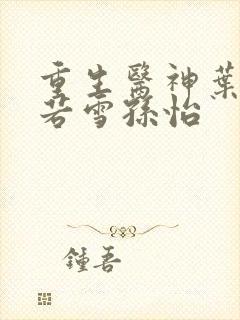 重生醫神葉
若雪孫怡
鍾吾